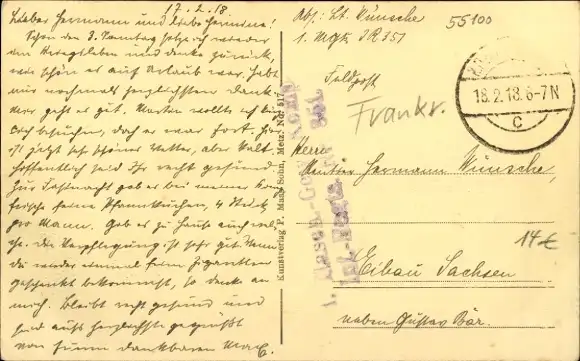 17.2.18
Lieber Hermann und liebe Hermine!
Schon den 3. Sonntag jetzt wieder
im Kriegsleben und denke zurück,
wie schön es auf Urlaub war. Habt
nur nochmals herzlichsten Dank
Mir geht es gut. Martin wollte ich
besuchen, doch er war fort. Hier
ist jetzt sehr schönes Wetter, aber kalt.
Hoffentlich seid Ihr recht gesund.
Zur Fastnacht gab es bei meiner
frische feine Pfannkuchen, 4 Stück
pro Mann. Gab es zu Hause auch
Die Verpflegung ist sehr gut. Wenn
du wieder einmal feine Zigaretten
geschenkt bekommst, so denke an
mich. Bleibt recht gesund und
seid aufs herzlichste gegrüßt
von Eurem dankbaren
Kunstverlag P. Mans Sohn, Metz. No.
Abs: Lt. Wünsche
1. MGK IR 351
55100
Feldpost
Frankr.
18.2.18. 6-7N
C
Herrn
Rentier Hermann Wünsche,
14€
Eibau Sachsen
neben Gustav Bär.